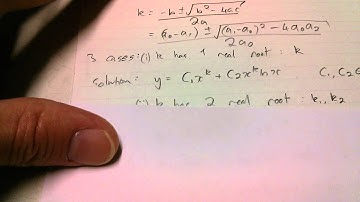 k = -b ± √b² - 4ac / 2a
= (a₀-a₁) ± √(a₁-a₀)² - 4a₀a₂ / 2a₀
3 cases: (i) k has 1 real root : k
Solution: y = C₁x^k + C₂x^k ln x C₁, C₂
(ii) k has 2 real root : k₁, k₂